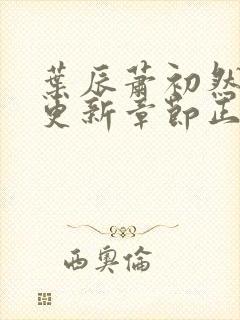 葉辰蕭初然
更新章節正
西奧倫